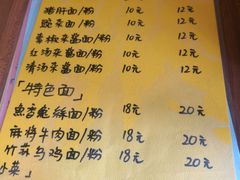 猪肝面/粉 10元 12元
豌杂面/粉 10元 12元
青椒杂酱面/粉 10元 12元
红汤杂酱面/粉 10元 12元
清汤杂酱面/粉 10元 12元
「特色面」
鱼香鳝鲜面/粉 18元 20元
麻将牛肉面/粉 18元 20元
竹荪乌鸡面/粉 18元 20元
小菜」